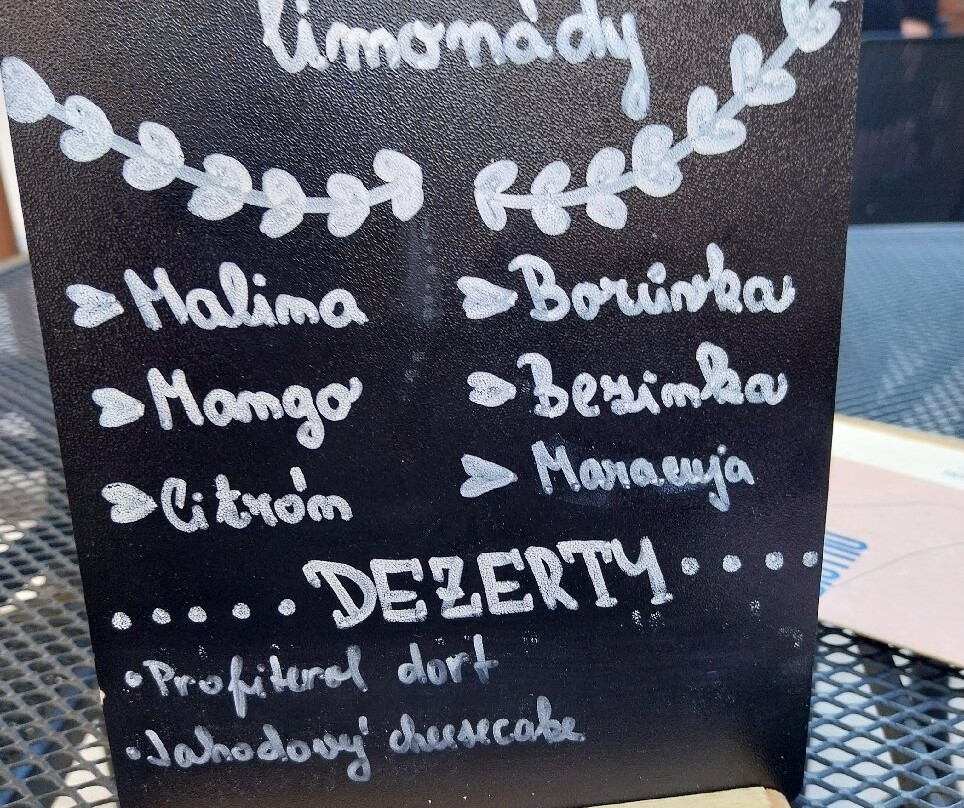 limonády
Malina
Borůvka
Mango
Bezinka
Citrón
Maracuja
DEZERTY
Profiterol dort
Jahodový cheesecake